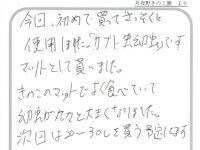 月夜野きのこ園 より
今回、初めて買てさっそく
使用した「カブト虫幼虫」です
マットとして買いました。
きのこのマットでよく食べていて
幼虫が大分と大きくなりました。
次回は20〜30Lを買う予定にします